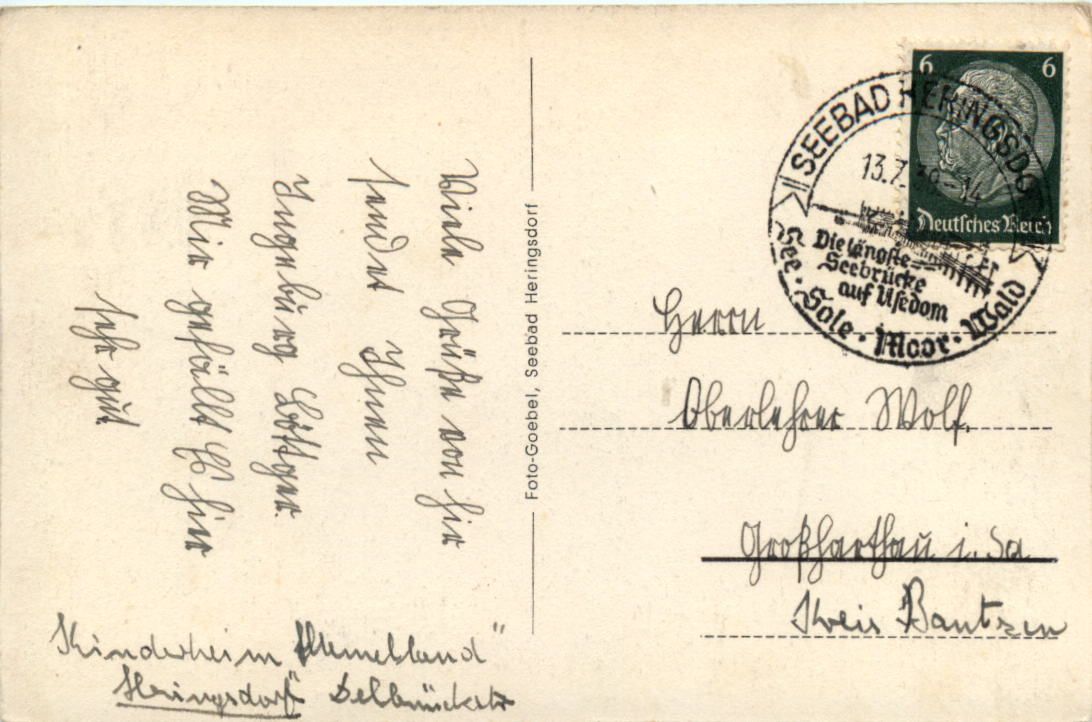 Viele Grüße von hir
sendet Ihnen
Ingeburg Böttger.
Mir gefällt Es hier
sehr gut
Kinderheim "Memelland"
Heringsdorf Delbrückstr
Foto-Goebel, Seebad Heringsdorf
6 6
Deutsches Reich
SEEBAD HERINGSDORF
13.7. -14
Die längste
Seebrücke
auf Usedom
See · Sole · Moor · Wald
Herrn
Oberlehrer Wolf.
Großharthau i. Sa
Kreis Bautzen